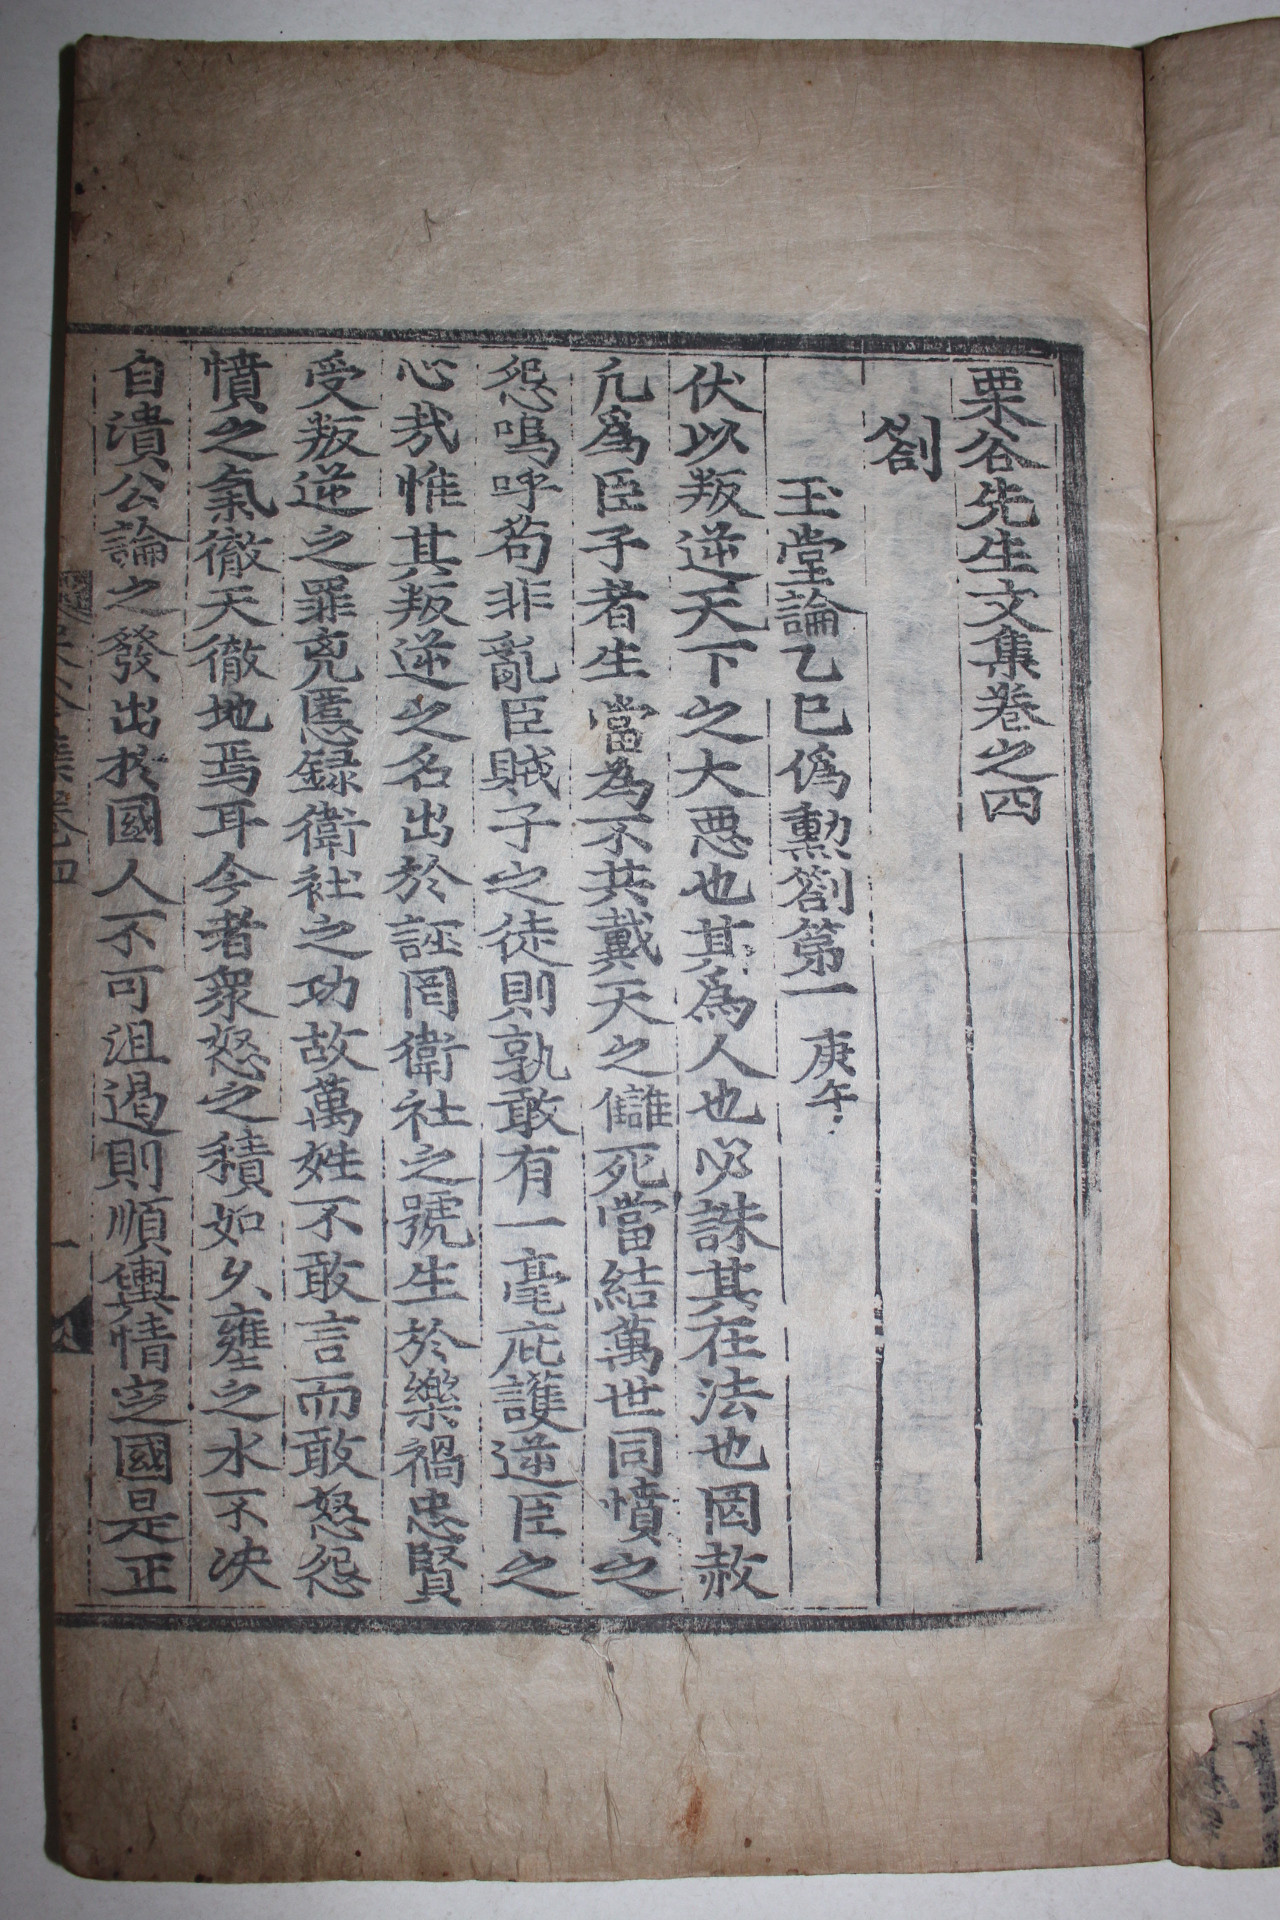 栗谷先生文集卷之四
劄
玉堂論乙巳僞勳劄第一 庚午
伏以叛逆天下之大惡也其爲人也必誅其在法也罔赦
凡爲臣子者生當為不共戴天之讎死當結萬世同憤之
怨嗚呼苟非亂臣賊子之徒則孰敢有一毫庇護逆臣之
心哉惟其叛逆之名出於誣罔衛社之號生於樂禍忠賢
受叛逆之罪兇慝錄衛社之功故萬姓不敢言而敢怒怨
憤之氣徹天徹地焉耳今者衆怒之積如久壅之水不決
自潰公論之發出於國人不可沮遏則順輿情定國是正
集卷四
一